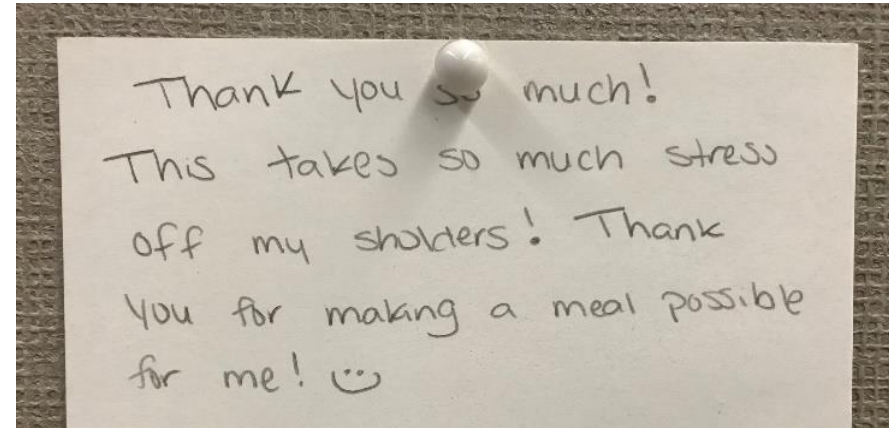 Thank you so much!
This takes so much stress
off my sholders! Thank
you for making a meal possible
for me! :)